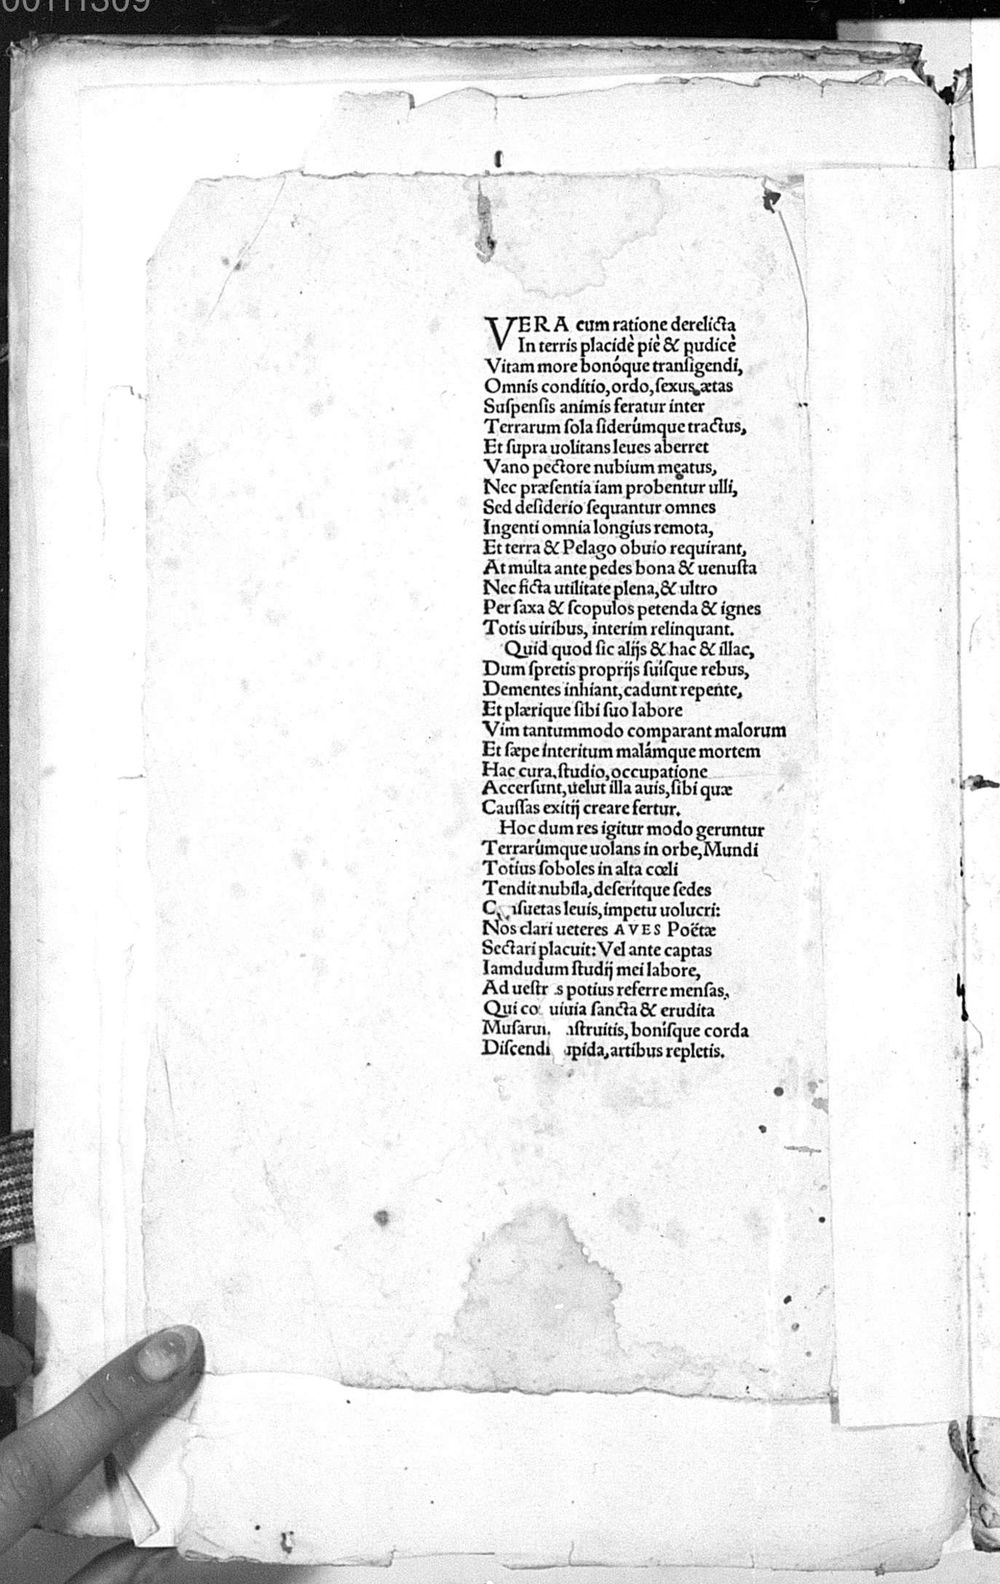 00111309
VERA cum ratione derelicta
In terris placidè piè & pudicè
Vitam more bonóque transigendi,
Omnis conditio, ordo, sexus, ætas
Suspensis animis feratur inter
Terrarum sola siderúmque tractus,
Et supra uolitans leues aberret
Vano pectore nubium meatus,
Nec præsentia iam probentur ulli,
Sed desiderio sequantur omnes
Ingenti omnia longius remota,
Et terra & Pelago obuio requirant,
At multa ante pedes bona & uenusta
Nec ficta utilitate plena, & ultro
Per saxa & scopulos petenda & ignes
Totis uiribus, interim relinquant.
Quid quod sic alijs & hac & illac,
Dum spretis proprijs suisque rebus,
Dementes inhiant, cadunt repente,
Et plærique sibi suo labore
Vim tantummodo comparant malorum
Et sæpe interitum malámque mortem
Hac cura, studio, occupatione
Accersunt, uelut illa auis, sibi quæ
Caussas exitij creare fertur.
Hoc dum res igitur modo geruntur
Terrarúmque uolans in orbe, Mundi
Totius soboles in alta cœli
Tendit nubila, deserítque sedes
suetas leuis, impetu uolucri:
Nos clari ueteres AVES Poëtæ
Sectari placuit: Vel ante captas
Iamdudum studij mei labore,
Ad uestr s potius referre mensas,
Qui co uiuia sancta & erudita
Musaru struitis, bonisque corda
Discendi pida, artibus repletis.